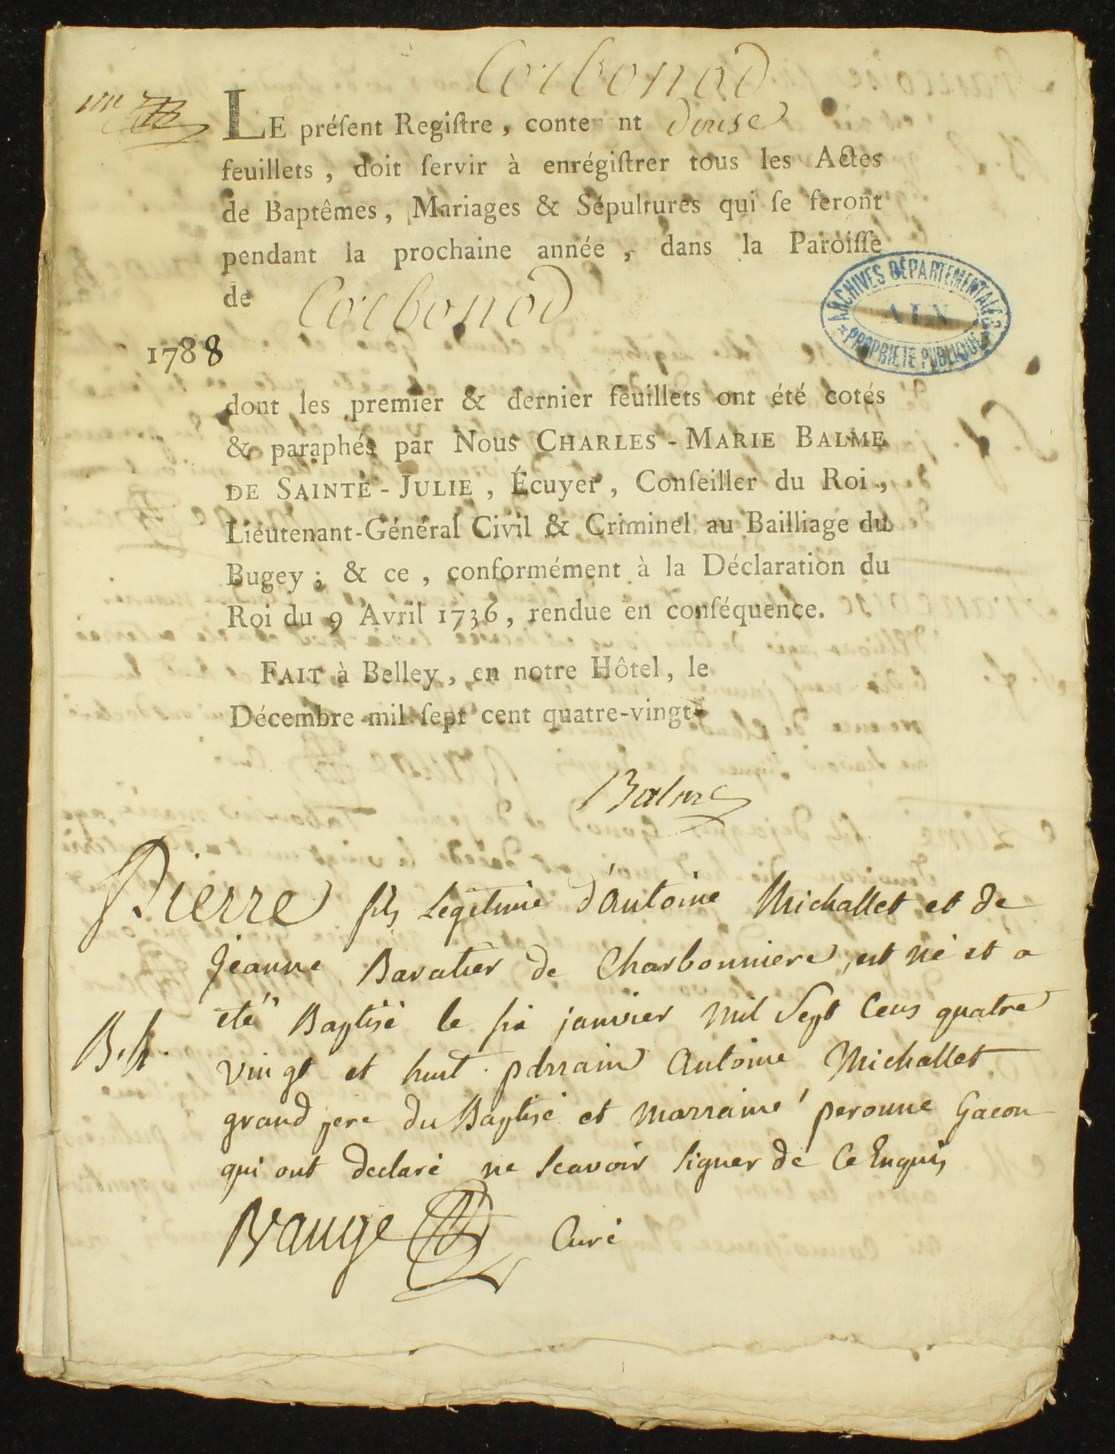 Corbonod
LE préſent Regiſtre, conte nt douse
feuillets, doit ſervir à enrégiſtrer tous les Actes
de Baptêmes, Mariages & Sépultures qui ſe feront
pendant la prochaine année, dans la Paroiſſe
de Corbonod
ARCHIVES DÉPARTEMENTALES
AIN
PROPRIÉTÉ PUBLIQUE
1788
dont les premier & dernier feuillets ont été cotés
& paraphés par Nous CHARLES-MARIE BALME
DE SAINTE-JULIE, Écuyer, Conſeiller du Roi,
Lieutenant-Général Civil & Criminel au Bailliage du
Bugey; & ce, conformément à la Déclaration du
Roi du 9 Avril 1736, rendue en conſéquence.
FAIT à Belley, en notre Hôtel, le
Décembre mil ſept cent quatre-vingt-
Balme
Pierre fils Legitime d'antoine Michallet et de
jeanne Bavatier de Charbonniere, est né et a
eté Baptisé le six janvier mil Sept Cens quatre
vingt et huit. parrain antoine Michallet
grand pere du Baptisé et marraine peronne Gacon
qui ont declaré ne Scavoir signer de Ce Enquis
B.
Curé